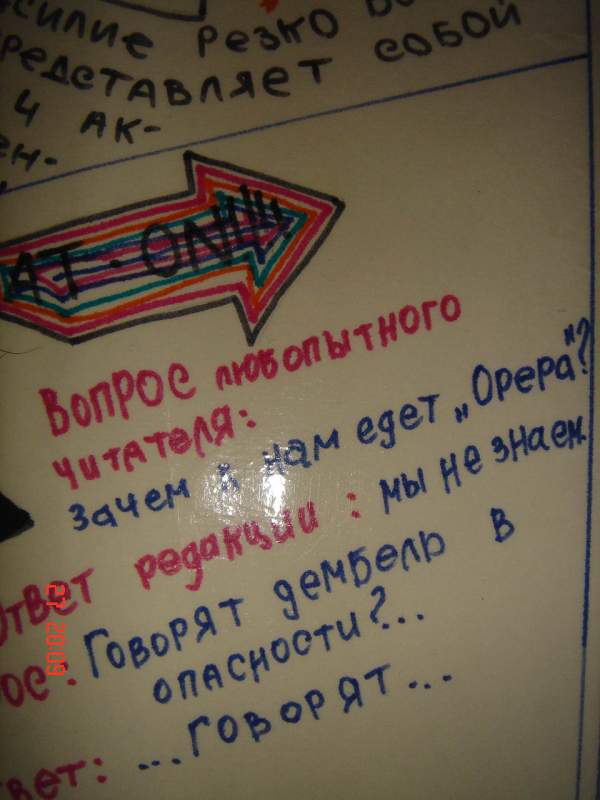 силие резко
представляет собой
4 ак-
ен-
AT-ON
Вопрос любопытного
читателя:
Зачем к нам едет „Opera"?
Ответ редакции: мы не знаем
ос: Говорят дембель в
опасности?...
твет: ...говорят...
27 20:09